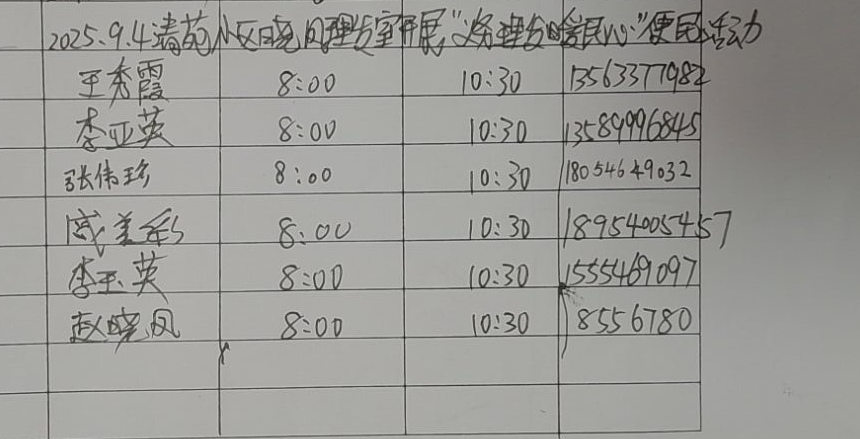 2025.9.4清苑小区晓风理发室开展“义务理发暖民心”便民活动
王秀霞 8:00 10:30 13563377982
李亚英 8:00 10:30 13589996845
张伟珍 8:00 10:30 18054649032
戚美彩 8:00 10:30 18954005457
李玉英 8:00 10:30 1555469097
赵晓风 8:00 10:30 8556780